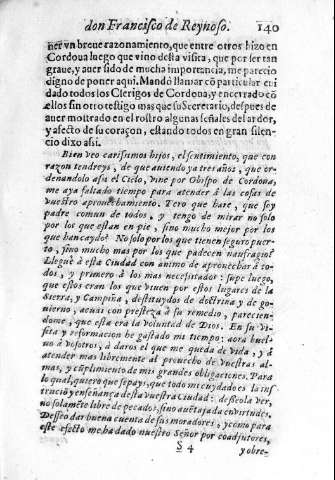 don Francisco de Reynoso. 140
ner vn breue razonamiento, que entre otros hizo en
Cordoua luego que vino desta visita, que por ser tan
graue, y auer sido de mucha importancia, me parecio
digno de poner aqui. Mandó llamar cõ particular cui
dado todos los Clerigos de Cordoua, y encerrado cõ
ellos sin otro testigo mas que su Secretario, despues de
auer mostrado en el rostro algunas señales del ardor,
y afecto de su coraçon, estando todos en gran silen-
cio dixo assi.
Bien veo carissimos hijos, el sentimiento, que con
razon tendreys, de que auiendo ya tres años, que or-
denandolo assi el Cielo, vine por Obispo de Cordoua,
me aya faltado tiempo para atender á las cosas de
vuestro aprouechamiento. Pero que hare, que soy
padre comun de todos, y tengo de mirar no solo
por los que estan en pie, sino mucho mejor por los
que han caydo? No solo por los que tienen seguro puer-
to, sino mucho mas por los que padecen naufragio?
Llegue á esta Ciudad con animo de aprouechar á to-
dos, y primero à los mas necessitados: supe luego,
que estos eran los que viuen por estos lugares de la
Sierra, y Campiña, destituydos de doctrina y de go-
uierno, acudi con presteza à su remedio, parecien-
dome, que esta erà la voluntad de Dios. En su vi-
sita y reformacion he gastado mi tiempo: aora buel-
uo à vosotros, à daros el que me queda de vida, y á
atender mas libremente al prouecho de vuestras al-
mas, y cũplimiento de mis grandes obligaciones. Para
lo qual, quiero que sepays, que todo mi cuydado es la ins-
trucciõ y enseñança desta vuestra Ciudad: desseola ver,
no solamẽte libre de pecados, sino auẽtajada en virtudes.
Desseo dar buena cuenta de sus moradores, y como para
este efecto me ha dado nuestro Señor por coadjutores,
S 4 y obre-